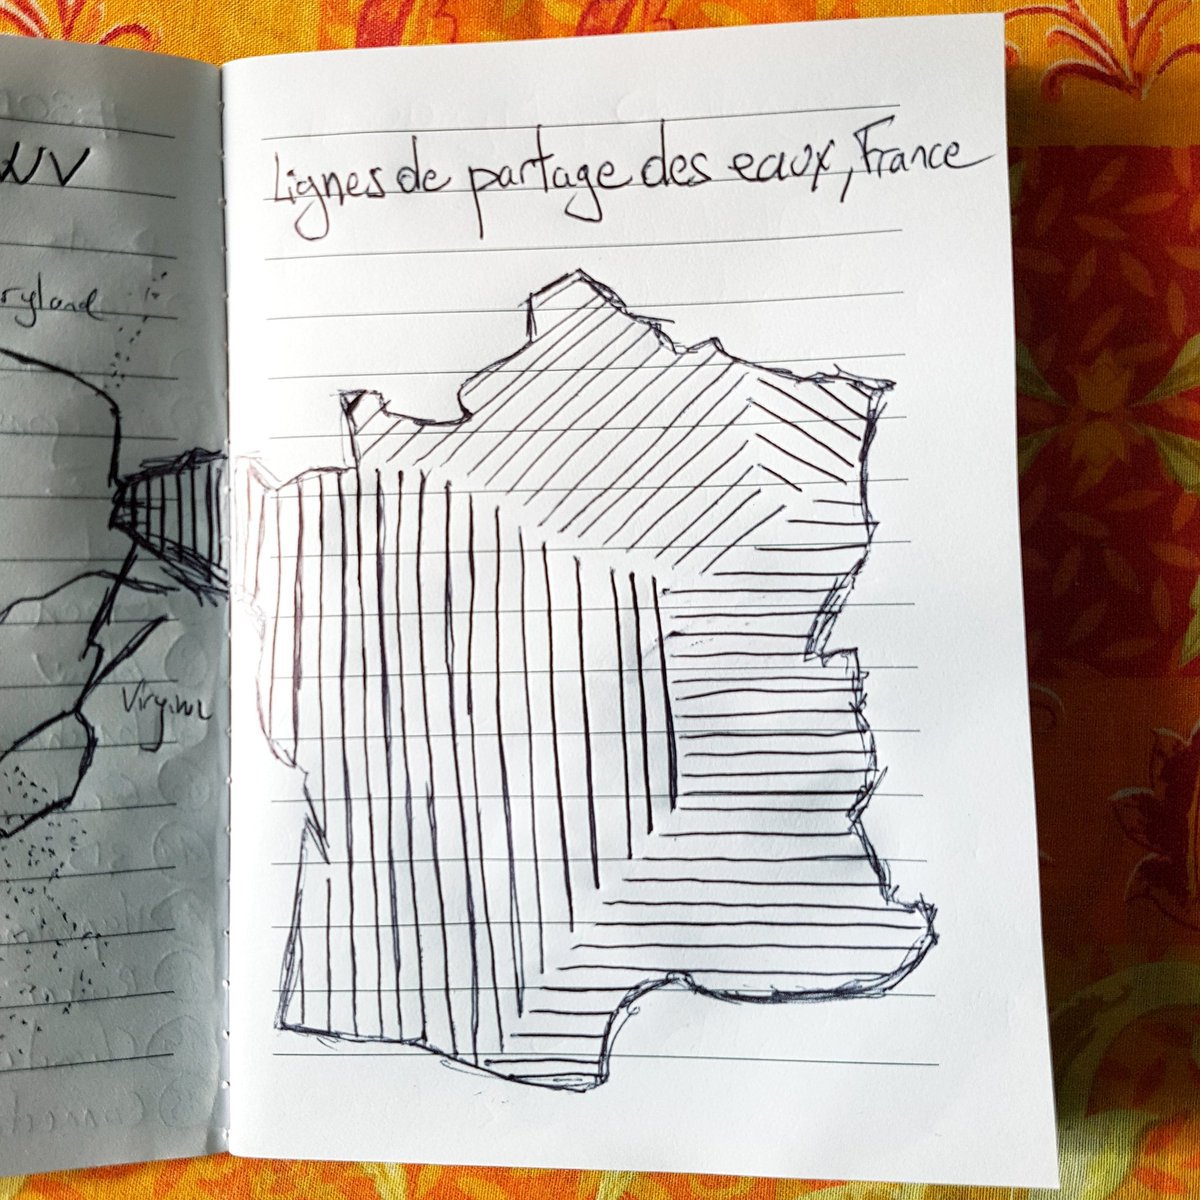 Lignes de partage des eaux, France
WV
ryland
Virginia